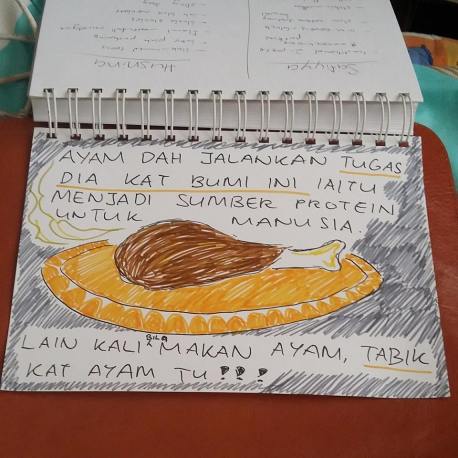 Sakiyya
Husnina
AYAM DAH JALANKAN TUGAS
DIA KAT BUMI INI IAITU
MENJADI SUMBER PROTEIN
UNTUK MANUSIA.
LAIN KALI BILA MAKAN AYAM, TABIK
KAT AYAM TU!!!